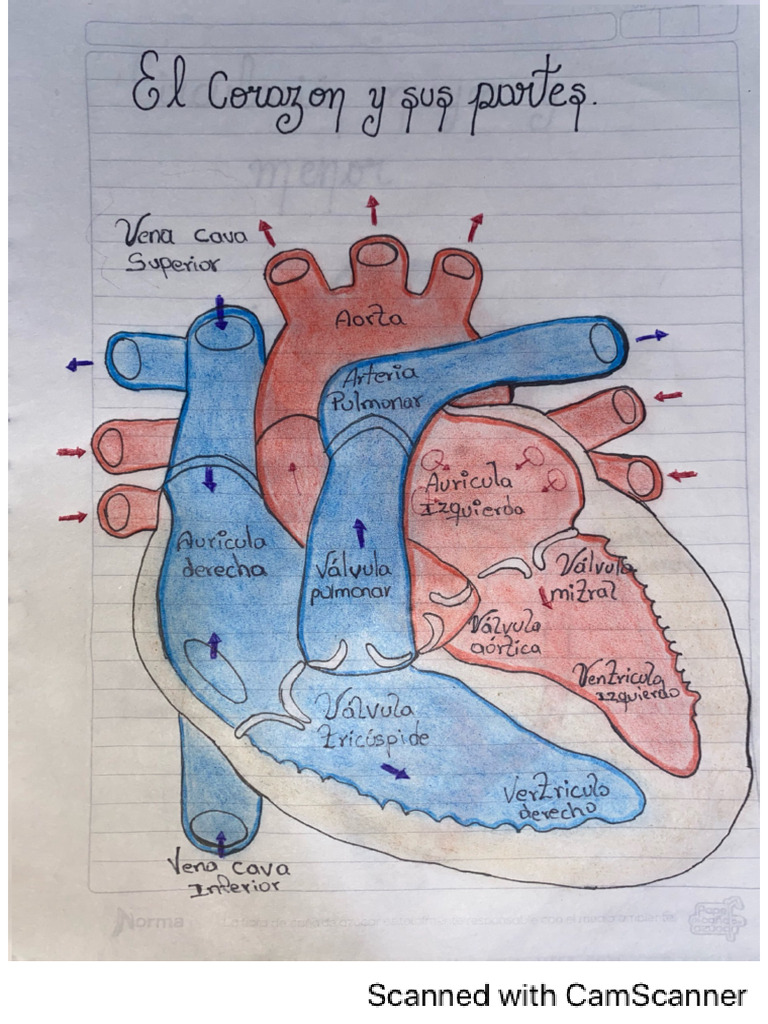 El Corazon y sus partes.
menor
Vena cava
Superior
Aorta
Arteria
Pulmonar
Auricula
Izquierda
Auricula
derecha
Válvula
pulmonar
Válvula
mitral
Válvula
aórtica
Ventriculo
Izquierdo
Válvula
tricúspide
Vertriculo
derecho
Vena cava
Inferior
Norma
Scanned with CamScanner